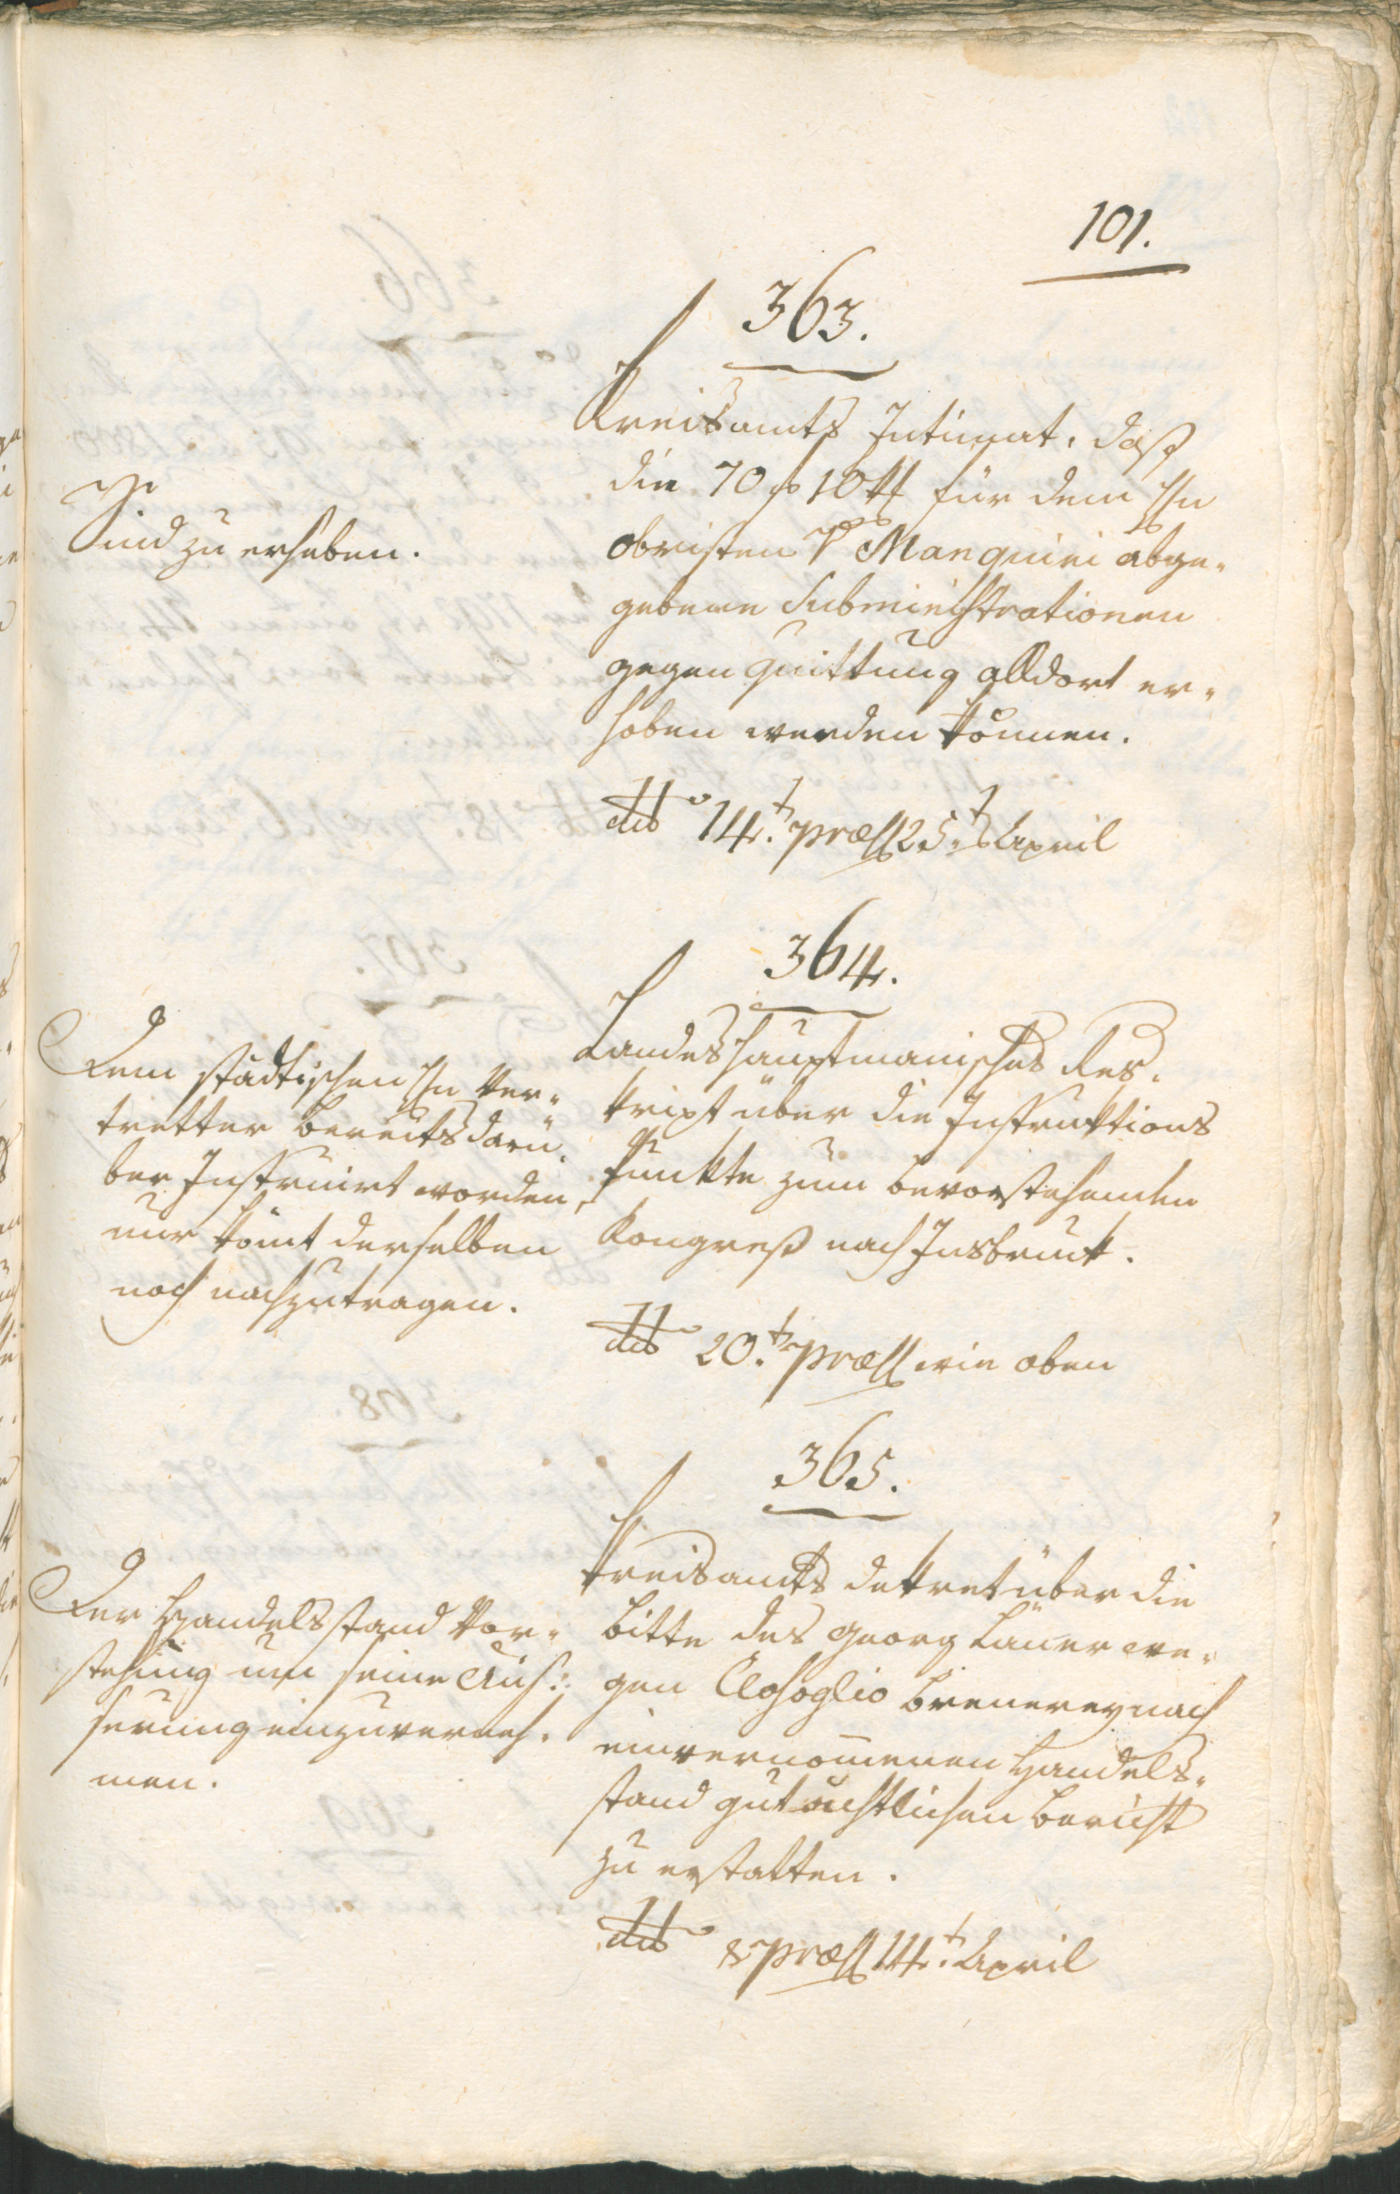 101.
363.
Kreisamts Intimat, daß
die 70 f 10 x für dem Hn
obristen Manquini abge-
gebene Subministrationen
gegen Quittung alldort er-
hoben werden können.
Sind zu erheben.
ddo 14.t praes 25.t April
364.
Landeshauptmanisches Res-
kript über die Instruktions
Punkte zum bevorstehenden
Kongreß nach Insbruck.
Dem städtischen Hn Ver-
tretter bereits darü-
ber Instruirt worden,
nur könt derselben
noch nachzutragen.
ddo 20.t praes wie oben
365.
Kreisamts Dekret über die
Bitte des Georg Lauer we-
gen Rosoglio Brenerey nach
einvernommenen Handels-
stand gutächtlichen Bericht
zu erstatten.
Der Handelsstand Vor-
stehung um seine Aüs-
serung einzuverneh-
men.
ddo 8 praes 14.t April